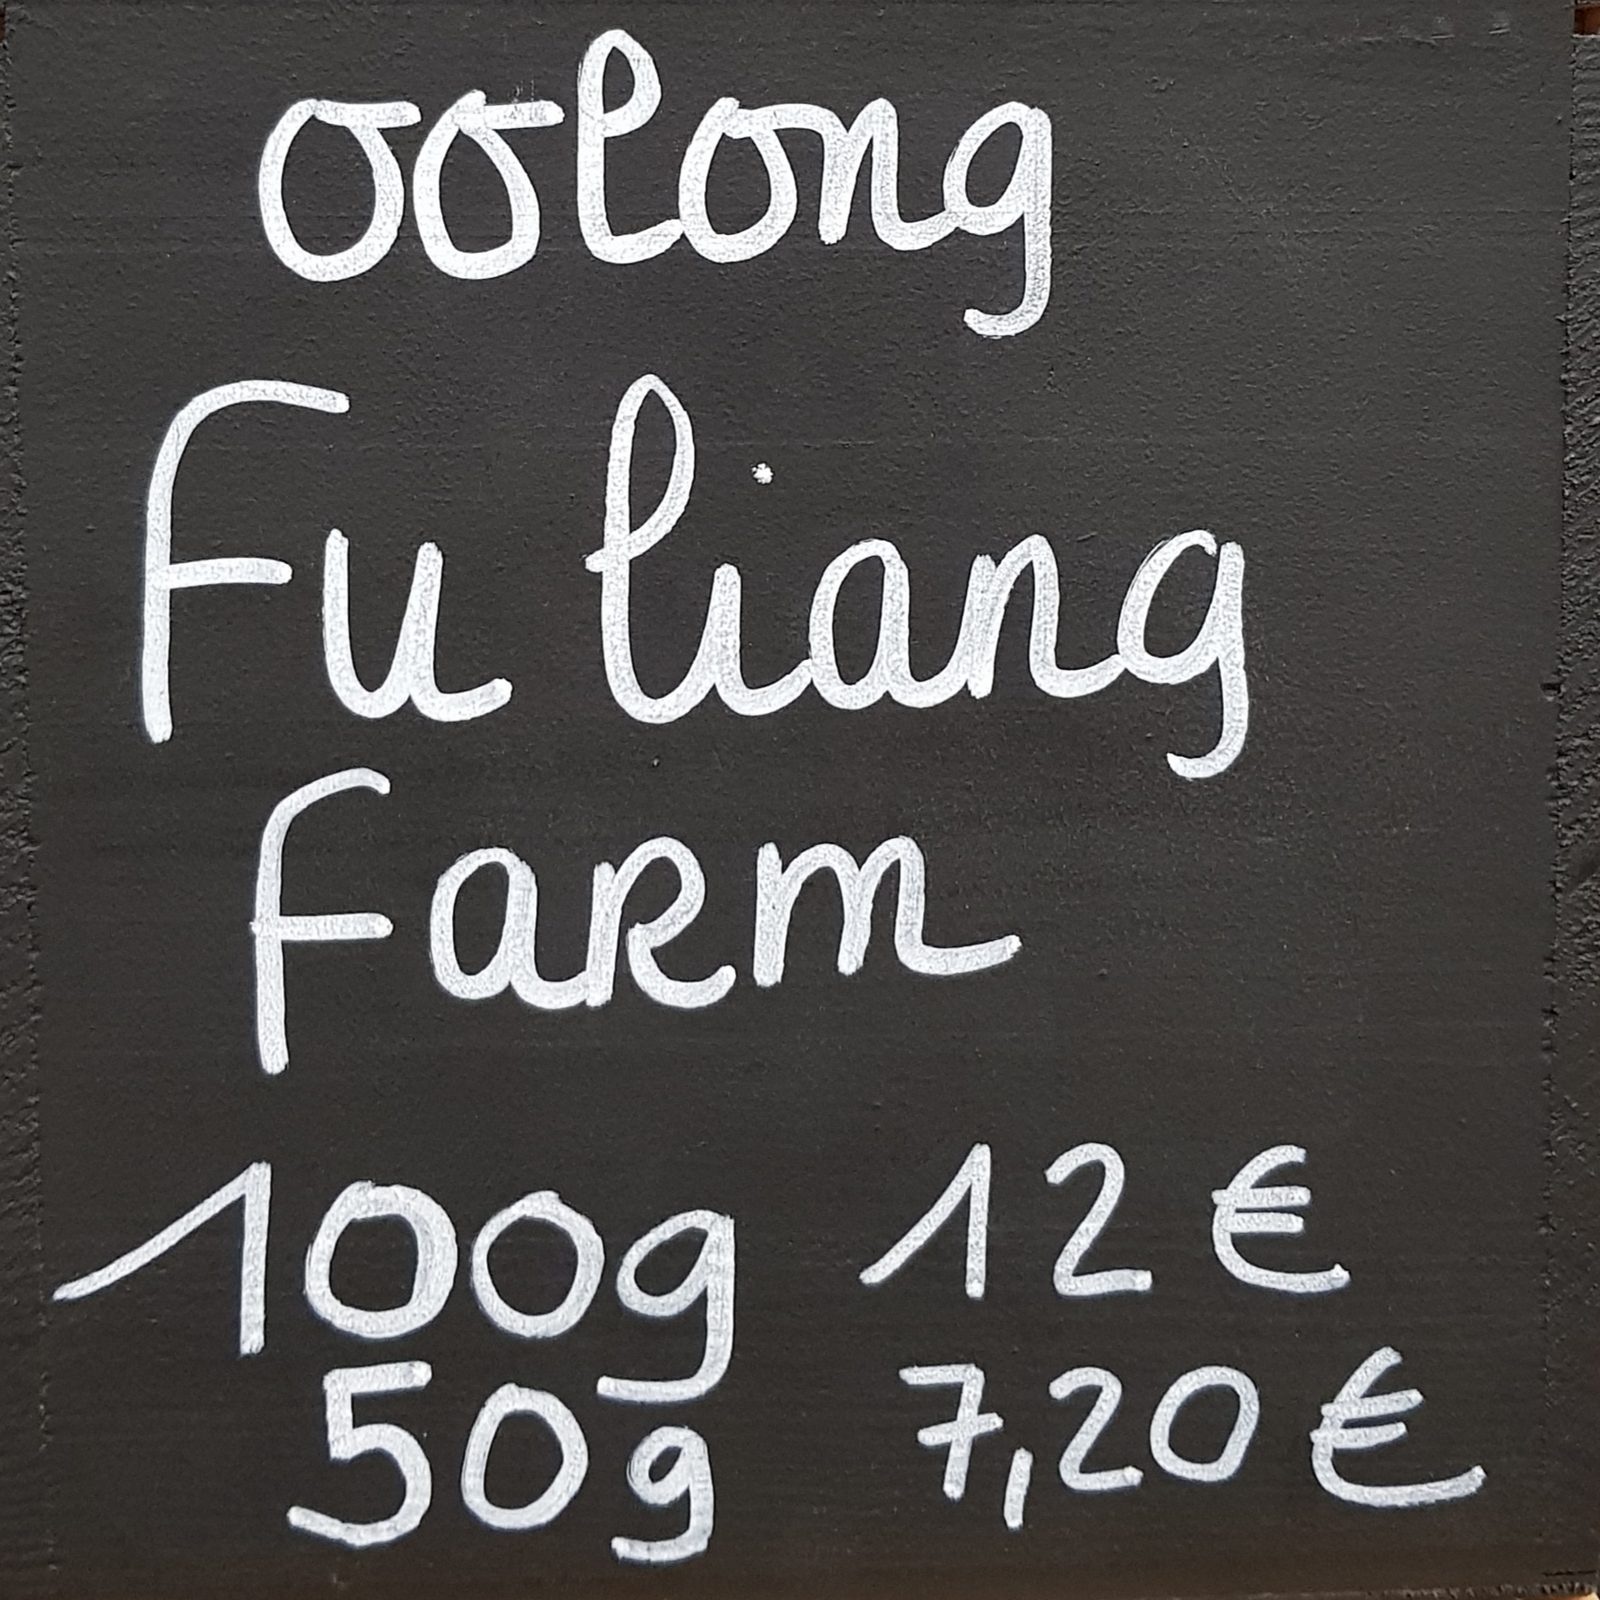 oolong
Fu liang
Farm
100g 12 €
50g 7,20 €